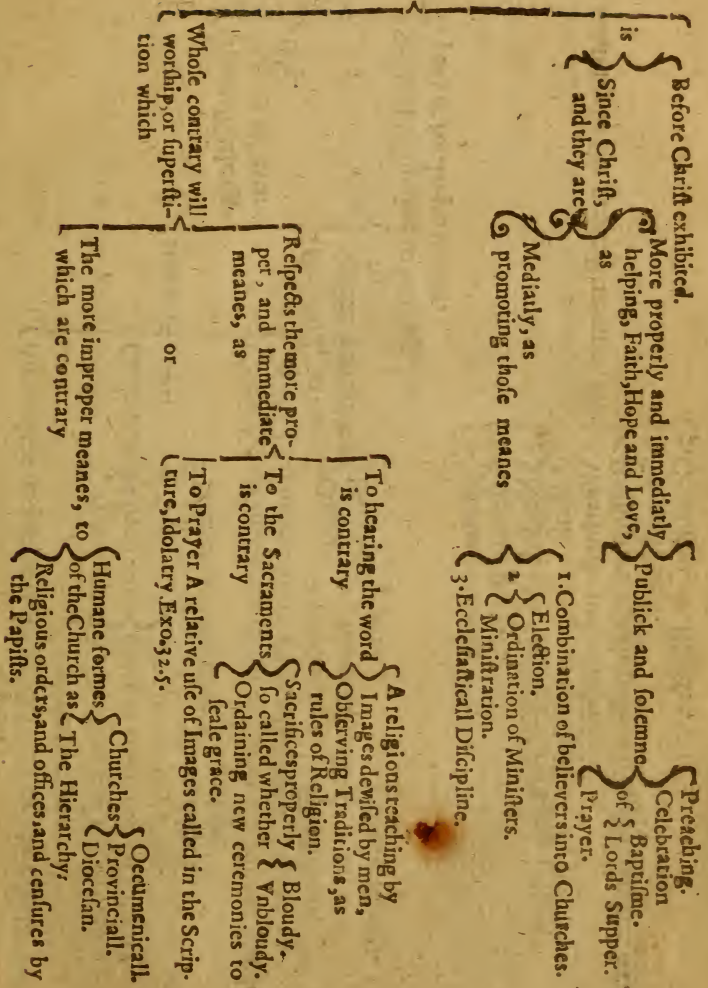 is
Before Chriſt exhibited.
Since Chriſt,
and they are
More properly and immediatly
helping, Faith, Hope and Love,
as
Publick and ſolemne
Preaching.
Celebration
of
Baptiſme.
Lords Supper.
Prayer.
Mediatly, as
promoting thoſe meanes
1. Combination of believers into Churches.
2
Election.
Ordination of Miniſters.
Miniſtration.
3. Eccleſiaſticall Diſcipline.
Whoſe contrary will
worſhip, or ſuperſti-
tion which
Reſpects the more pro-
per, and Immediate
meanes, as
To hearing the word
is contrary
A religious teaching by
Images deviſed by men,
Obſerving Traditions, as
rules of Religion.
To the Sacraments
is contrary
Sacrifices properly
ſo called whether
Bloudy.
Vnbloudy.
Ordaining new ceremonies to
ſeale grace.
To Prayer A relative uſe of Images called in the Scrip-
ture, Idolatry Exo. 32. 5.
or
The more improper meanes, to
which are contrary
Humane formes
of the Church as
Churches
Oecumenicall.
Provinciall.
Dioceſan.
The Hierarchy:
Religious orders, and offices, and cenſures by
the Papiſts.